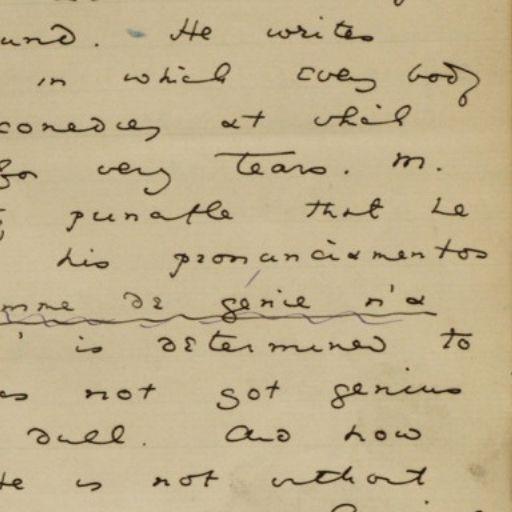 und. He writes
in which every body
comedies at which
for very tears. M.
punctale that he
his pronunciamentos
mme de génie n'a
' is determined to
as not got genius
dull. And how
He is not without